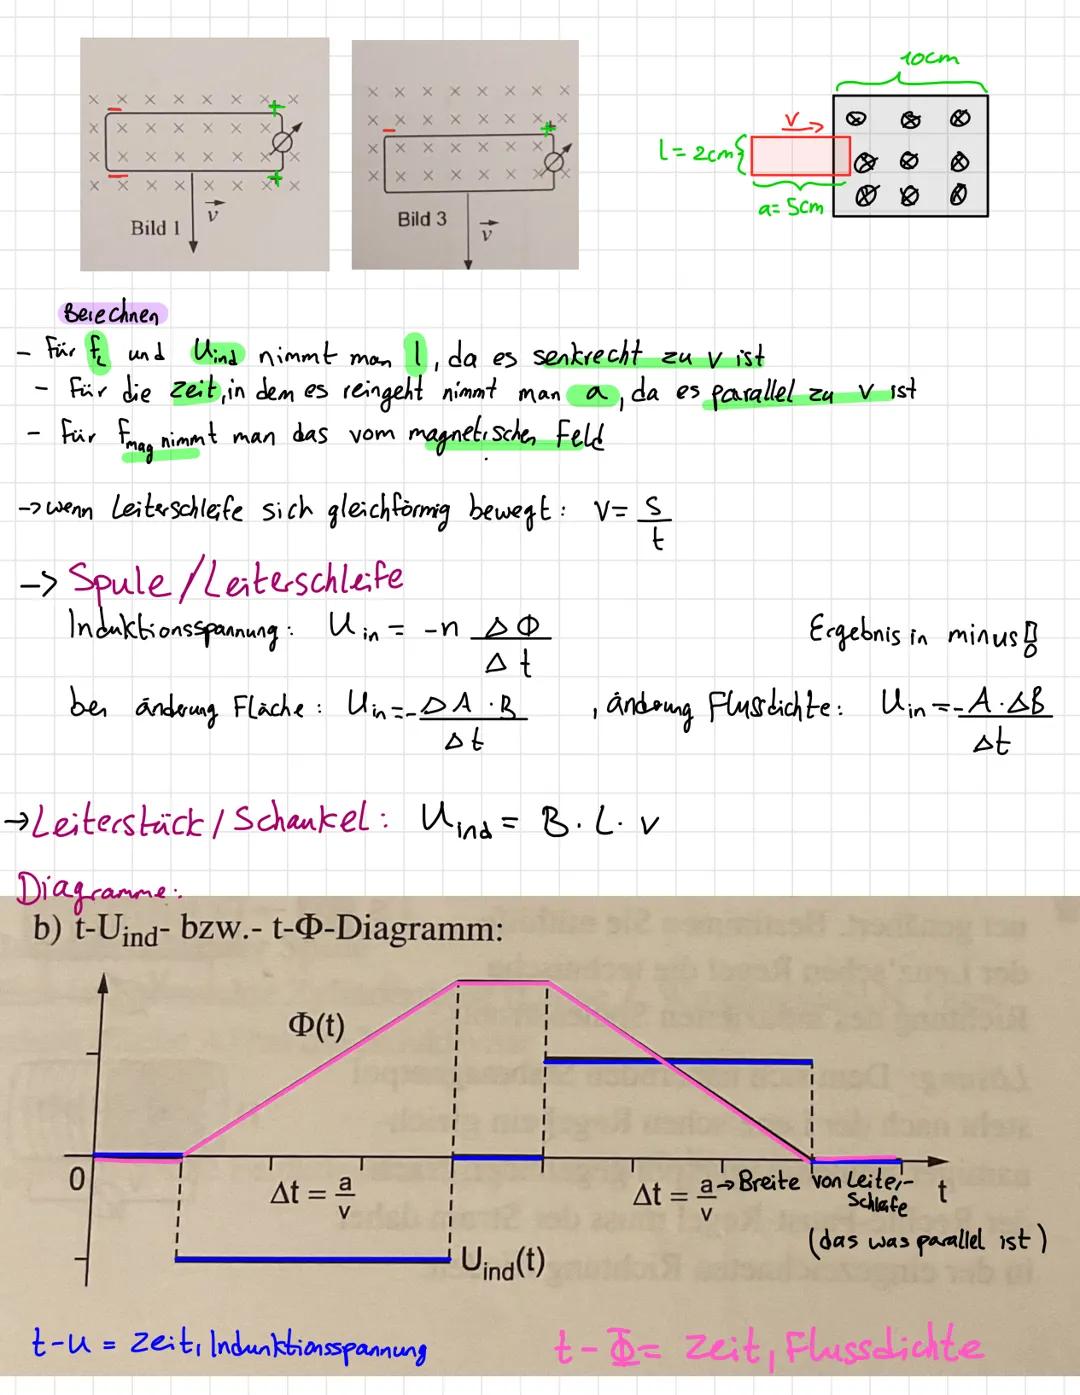 10cm
v
l = 2cm
a = 5cm
Bild 1
v
Bild 3
v
Berechnen
- Für FL und Uind nimmt man l, da es senkrecht zu v ist
- Für die Zeit, in dem es reingeht nimmt man a, da es parallel zu v ist
- Für Fmag nimmt man das vom magnetischen Feld
-> wenn Leiterschleife sich gleichförmig bewegt: v = s/t
-> Spule/Leiterschleife
Induktionsspannung: Uin = -n ΔΦ/Δt
Ergebnis in minus!
bei änderung Fläche: Uin = - ΔA · B/Δt , änderung Flussdichte: Uin = - A · ΔB/Δt
→ Leiterstück / Schaukel: Uind = B · L · v
Diagramme:
b) t-Uind- bzw.- t-Φ-Diagramm:
Φ(t)
0
Δt = a/v
Δt = a/v → Breite von Leiter-
schleife
t
(das was parallel ist)
Uind(t)
t-u = Zeit, Indunktionsspannung
t-Φ = Zeit, Flussdichte